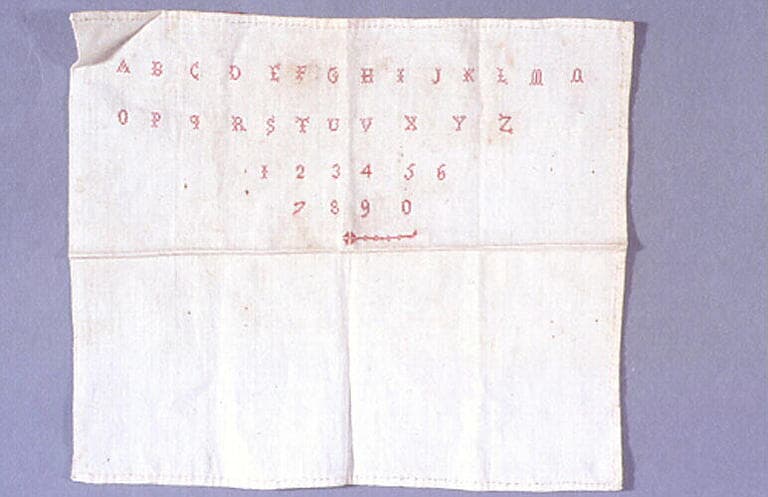 A B C D E F G H I J K L M N
O P Q R S T U V X Y Z
1 2 3 4 5 6
7 8 9 0